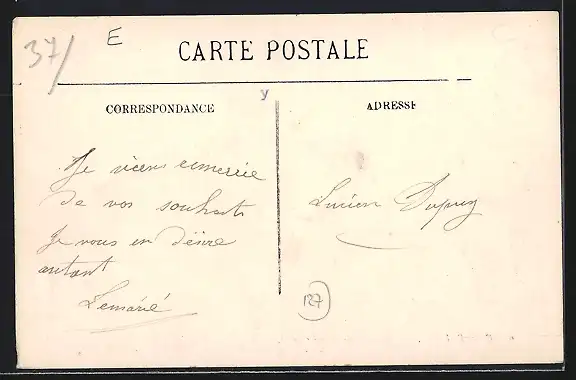 37/
E
CARTE POSTALE
CORRESPONDANCE
y
ADRESSE
Je viens remercie
de vos souhaits
Je vous en désire
autant
Lemarié
Lucien Dupuy
127